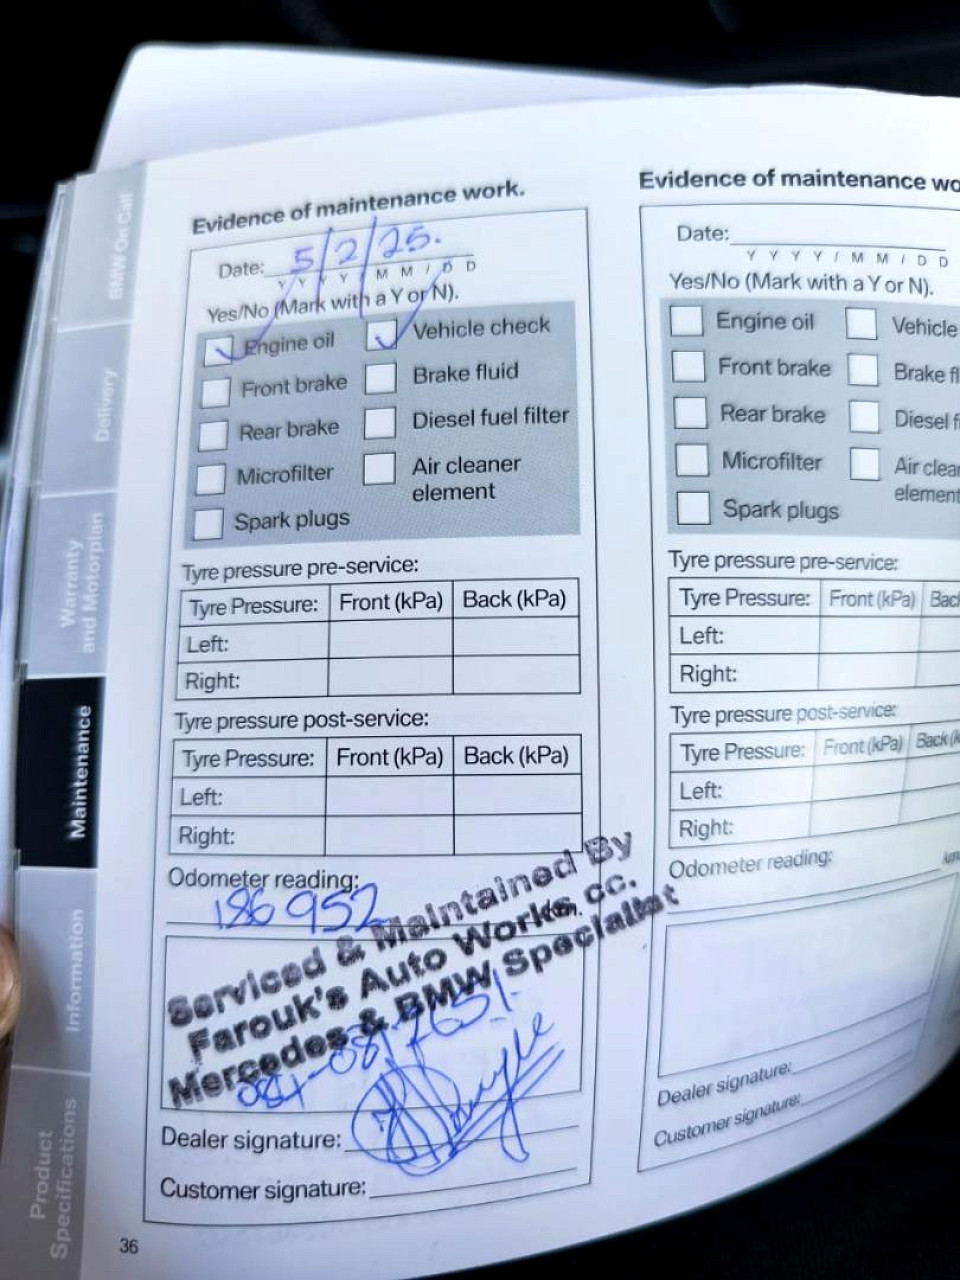 BMW On Call
Delivery
Warranty
and Motorplan
Maintenance
Information
Product
Specifications
Evidence of maintenance work.
Date: 5/2/25.
Y Y Y Y / M M / D D
Yes/No (Mark with a Y or N).
Engine oil
Vehicle check
Front brake
Brake fluid
Rear brake
Diesel fuel filter
Microfilter
Air cleaner
element
Spark plugs
Tyre pressure pre-service:
Tyre Pressure: Front (kPa) Back (kPa)
Left:
Right:
Tyre pressure post-service:
Tyre Pressure: Front (kPa) Back (kPa)
Left:
Right:
Odometer reading:
186952 km.
Serviced & Maintained By
Farouk's Auto Works cc.
Mercedes & BMW Specialist
Dealer signature:
Customer signature:
36
Evidence of maintenance wo
Date:
Y Y Y Y / M M / D D
Yes/No (Mark with a Y or N).
Engine oil
Vehicle
Front brake
Brake fl
Rear brake
Diesel fi
Microfilter
Air clea
element
Spark plugs
Tyre pressure pre-service:
Tyre Pressure: Front (kPa) Back
Left:
Right:
Tyre pressure post-service:
Tyre Pressure: Front (kPa) Back (k
Left:
Right:
Odometer reading:
Dealer signature:
Customer signature: